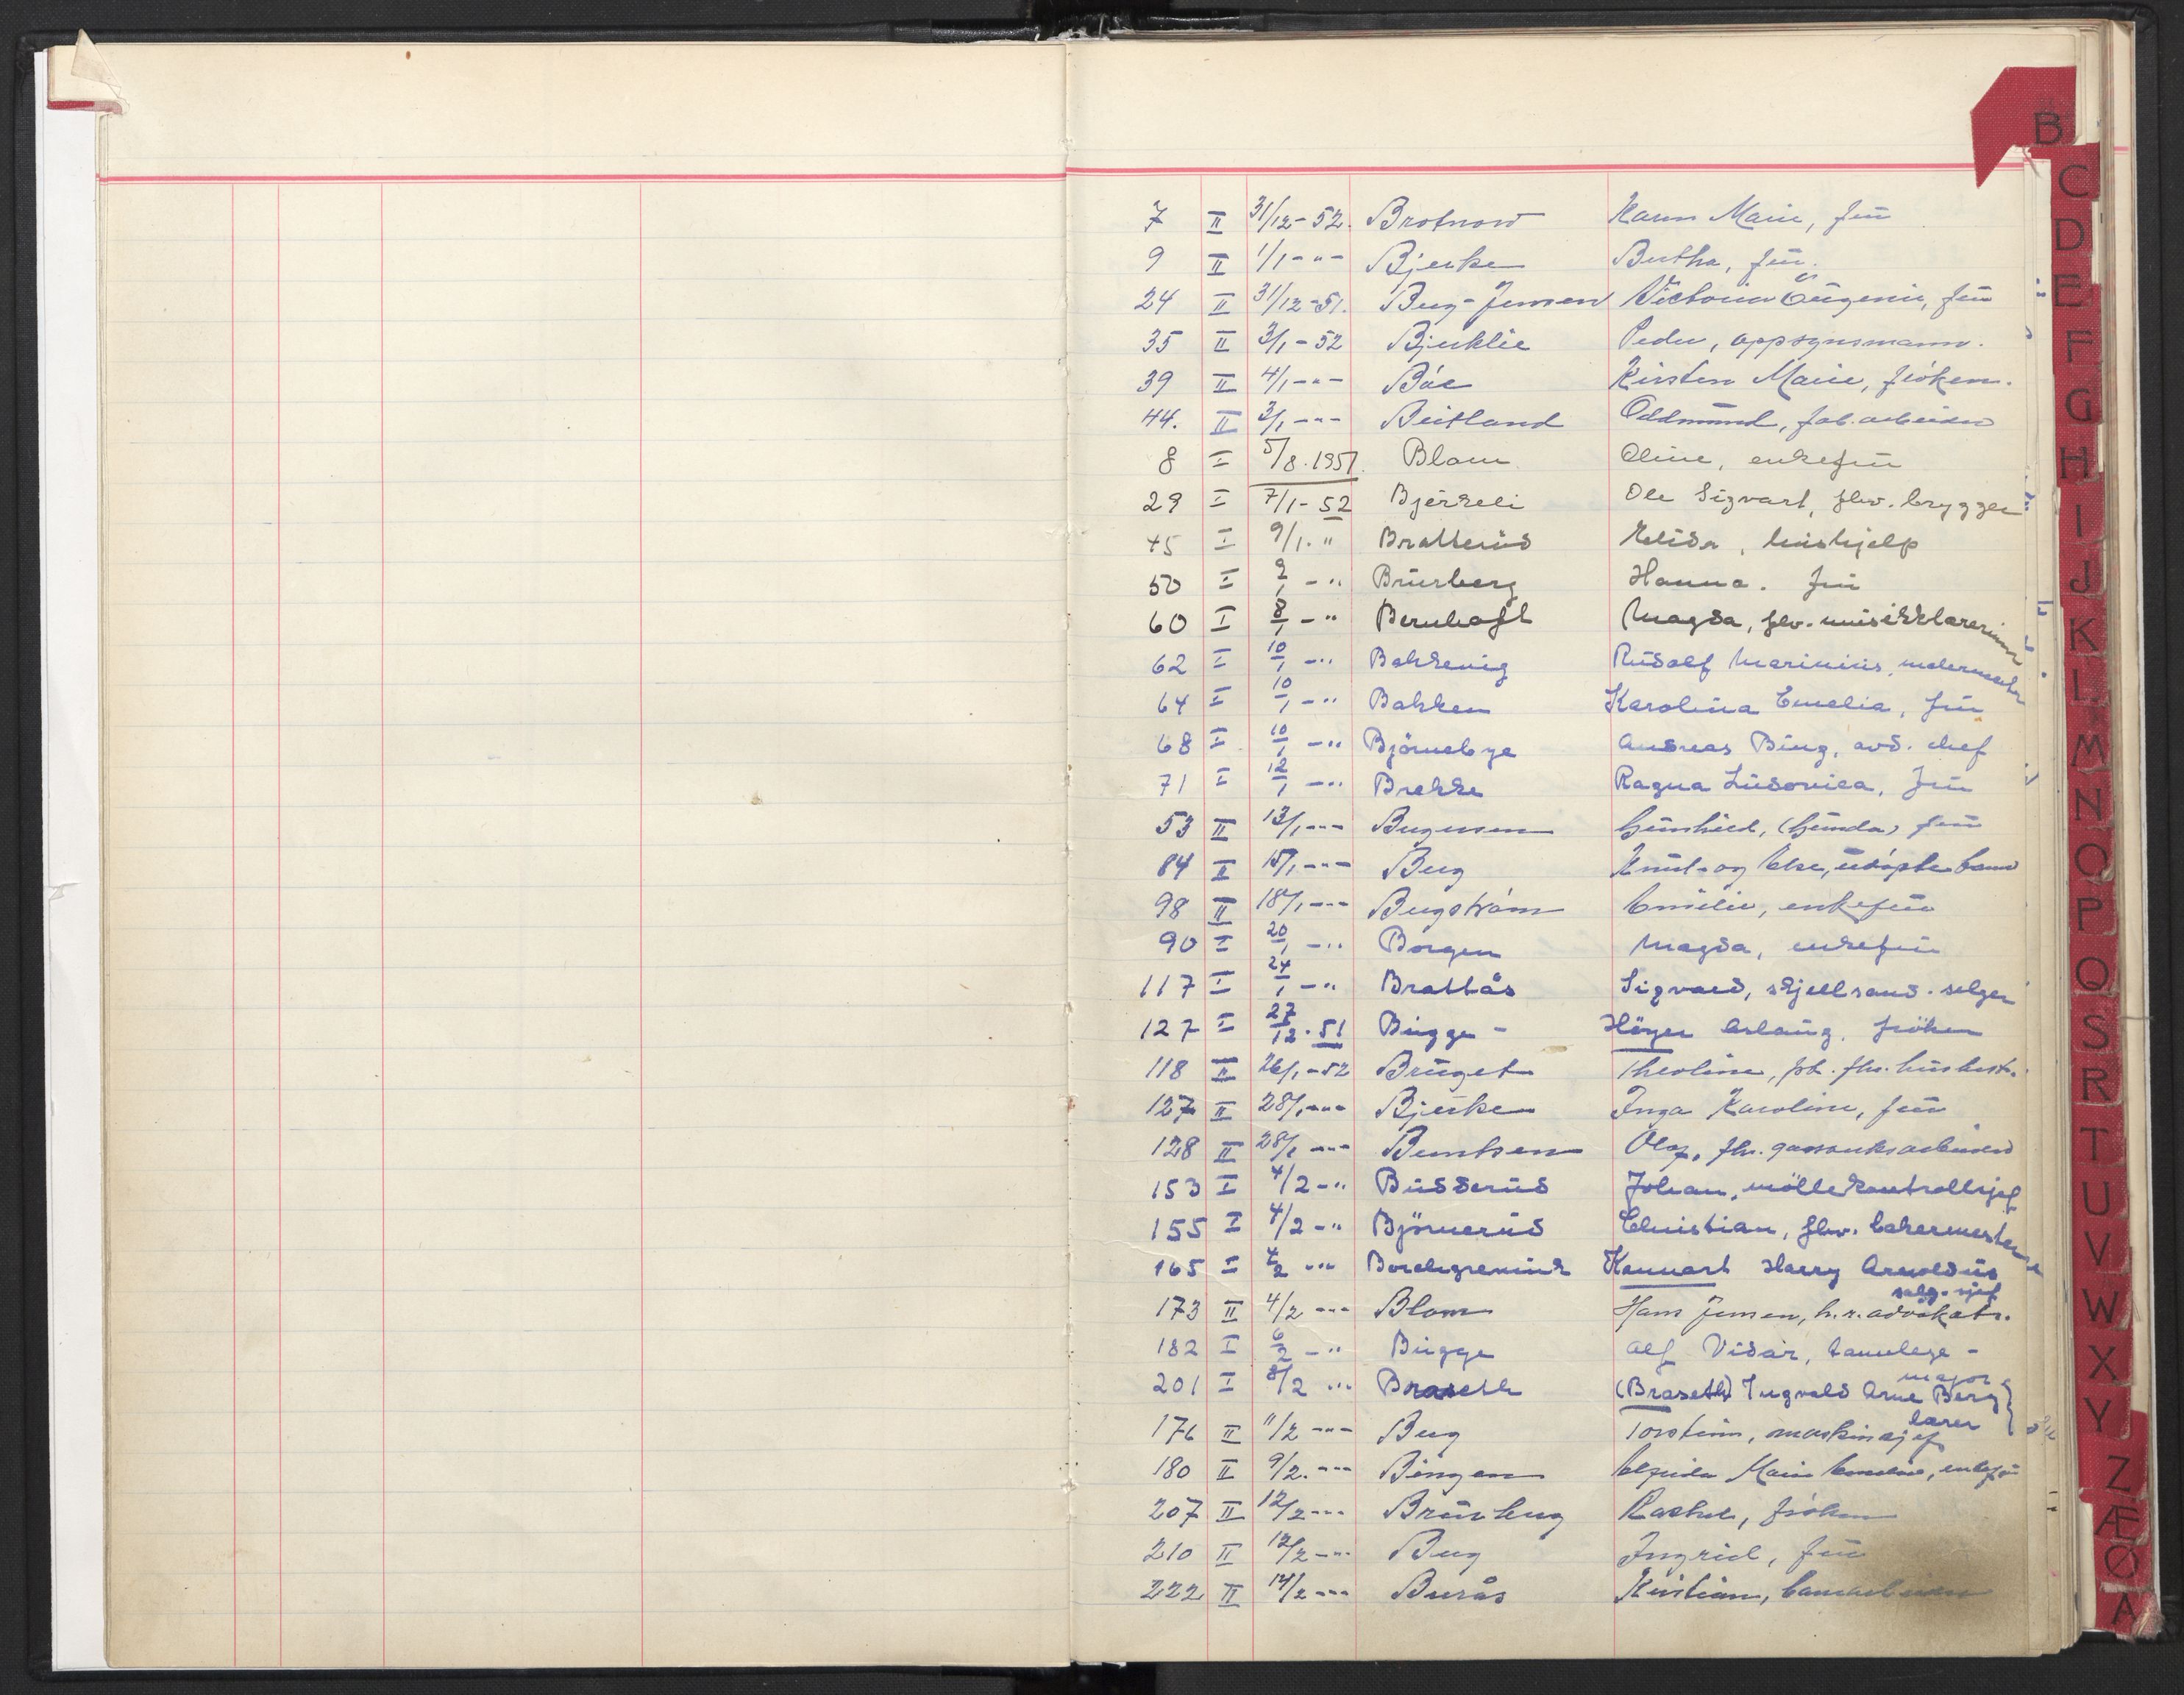 B
7 II 31/12-52. Brotnow Karen Marie, frū
9 II 1/1 -"- Bjerke Bertha, frū.
24 II 31/12-51. Berg-Jensen Victoria Eūgenie, frū
35 II 3/1-52 Bjerklie Peder, oppsynsmann.
39 II 4/1 -"- Bøe Kirsten Marie, frøken.
44. II 3/1 -"- Beitland Oddmūnd, fab.arbeider
8 I 5/8.1951. Blom Oline, enkefrū
29 I 7/1-52 Bjerkeli Ole Sigvart, fhv. brygger
45 I 9/1. " Bratterūd Elida, hūshjelp
50 I 9/1 - " Brūrberg Hanna. frū
60 I 8/1 - " Bernhoft Magda, fhv. mūsikklærerinne
62 I 10/1 - " Bakkevig Rūdolf Mariniūs, malermester
64 I 10/1 - " Bakken Karolina Emelia, frū
68 I 10/1 - " Björnebye Andreas Bing, avd. chef
71 I 12/1 - " Brekke Ragna Lūdovica, frū
53 II 13/1 -"- Bergersen Gūnhild, (Gūnda) frū
84 II 15/1 -"- Berg Knūt- og Else, ūdøpte barn
98 II 18/1 -"- Bergstrøm Emilie, enkefrū
90 I 20/1 - " Borgen Magda, enkefrū
117 I 24/1 - " Brattås Sigvard, skjellsand-selger
127 I 27/12.51 Būgge - Höyer Aslaūg, fröken
118 II 26/1-52 Brūget Theoline, fhv. hūsbest.
127 II 28/1 -"- Bjerke Inga Karoline, frū
128 II 28/1 -"- Berntsen Olaf, fhv. gassverksarbeider
153 I 4/2 - " Būdderūd Johan, möllekontrollsjef
155 I 4/2 - " Björnerūd Christian, fhv. bakermester
165 I 4/2 - " Borchgrevink Kennart Harry Arnoldūs
salg-sjef
173 II 4/2 -"- Blom Hans Jensen, h.r.advokat.
182 I 6/2 - " Būgge Alf Vidar, tannlege -
major
201 I 8/2 - " Braseth (Braseth) Ingvald Arne Berg
lærer
176 II 11/2 -"- Berg Torstein, maskinsjef
180 II 9/2. -"- Bingen Marie enkefrū
207 II 12/2 -"- Brūrberg Rachel, frøken
210 II 12/2 -"- Berg Ingrid, frū
222 II 14/2 -"- Berås Kristian, banearbeider
C
D
E
F
G
H
I
J
K
L
M
N
O
P
Q
S
R
T
U
V
W
X
Y
Z
Æ
Ø
A